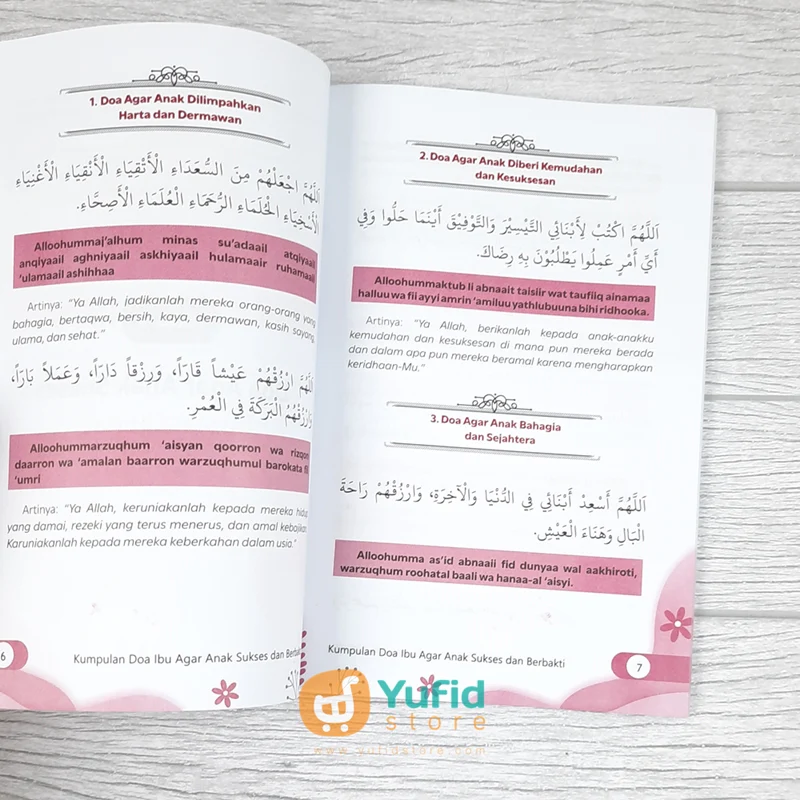 1. Doa Agar Anak Dilimpahkan
Harta dan Dermawan
اَللَّهُمَّ اجْعَلْهُمْ مِنَ السُّعَدَاءِ الْأَتْقِيَاءِ الْأَنْقِيَاءِ الْأَغْنِيَاءِ
الْأَسْخِيَاءِ الْحُلَمَاءِ الرُّحَمَاءِ الْعُلَمَاءِ الْأَصِحَّاءِ.
Alloohummaj'alhum minas su'adaail atqiyaail
anqiyaail aghniyaail askhiyaail hulamaair ruhamaail
'ulamaail ashihhaa
Artinya: "Ya Allah, jadikanlah mereka orang-orang yang
bahagia, bertaqwa, bersih, kaya, dermawan, kasih sayang
ulama, dan sehat."
اَللَّهُمَّ ارْزُقْهُمْ عَيْشاً قَارّاً، وَرِزْقاً دَارّاً، وَعَمَلاً بَارّاً،
وَارْزُقْهُمُ الْبَرَكَةَ فِي الْعُمْرِ.
Alloohummarzuqhum 'aisyan qoorron wa rizqon
daarron wa 'amalan baarron warzuqhumul barokata fil
'umri
Artinya: "Ya Allah, keruniakanlah kepada mereka hidup
yang damai, rezeki yang terus menerus, dan amal kebajikan
Karuniakanlah kepada mereka keberkahan dalam usia.'
6
Kumpulan Doa Ibu Agar Anak Sukses dan
2. Doa Agar Anak Diberi Kemudahan
dan Kesuksesan
اَللَّهُمَّ اكْتُبْ لِأَبْنَائِي التَّيْسِيْرَ وَالتَّوْفِيْقَ أَيْنَمَا حَلُّوا وَفِي
أَيِّ أَمْرٍ عَمِلُوا يَطْلُبُوْنَ بِهِ رِضَاكَ.
Alloohummaktub li abnaait taisiir wat taufiiq ainamaa
halluu wa fii ayyi amrin 'amiluu yathlubuuna bihi ridhooka.
Artinya: "Ya Allah, berikanlah kepada anak-anakku
kemudahan dan kesuksesan di mana pun mereka berada
dan dalam apa pun mereka beramal karena mengharapkan
keridhaan-Mu."
3. Doa Agar Anak Bahagia
dan Sejahtera
اَللَّهُمَّ أَسْعِدْ أَبْنَائِي فِي الدُّنْيَا وَالْآخِرَةِ، وَارْزُقْهُمْ رَاحَةَ
الْبَالِ وَهَنَاءَ الْعَيْشِ.
Alloohumma as'id abnaaii fid dunyaa wal aakhiroti,
warzuqhum roohatal baali wa hanaa-al 'aisyi.
Kumpulan Doa Ibu Agar Anak Sukses dan Berbakti
7
Yufid
store
www.yufidstore.com